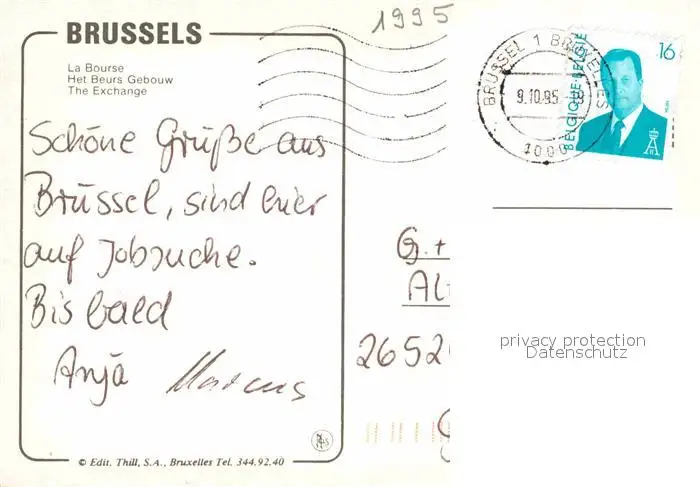 1995
BRUSSELS
La Bourse
Het Beurs Gebouw
The Exchange
Schöne Grüße aus
Brüssel, sind hier
auf Jobsuche.
Bis bald
Anja Marcus
© Edit. Thill, S.A., Bruxelles Tel. 344.92.40
BRUSSEL 1 BRUXELLES
9.10.95
1000
BELGIQUE-BELGIE
16
G. +
Al
2652
privacy protection
Datenschutz